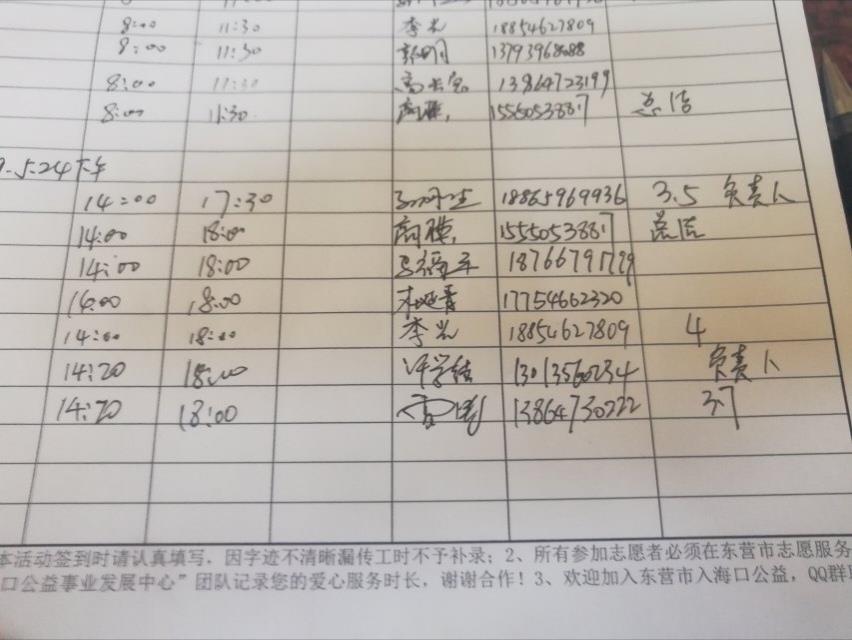 8:00 11:30 李光 18854627809
8:00 11:30 13793968088
8:00 11:30 13864723199
8:00 11:30 15550538817 总店
9.5.24下午
14:00 17:30 18865969936 3.5 负责人
14:00 18:00 15550538817 总店
14:00 18:00 18766791779
14:00 18:00 17754662320
14:00 18:00 李光 18854627809 4
14:20 18:00 许学结 13013560234 负责人
14:20 18:00 13864730222 3.7
本活动签到时请认真填写,因字迹不清晰漏传工时不予补录;2、所有参加志愿者必须在东营市志愿服务
口公益事业发展中心”团队记录您的爱心服务时长,谢谢合作!3、欢迎加入东营市入海口公益,QQ群